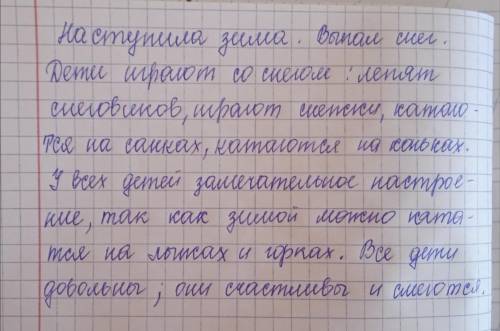 Наступила зима. Выпал снег.
Дети играют со снегом: лепят
снеговиков, играют снежки, катаю-
тся на санках, катаются на коньках.
У всех детей замечательное настрое-
ние, так как зимой можно ката-
тся на лыжах и горках. Все дети
довольны; они счастливы и смеются.